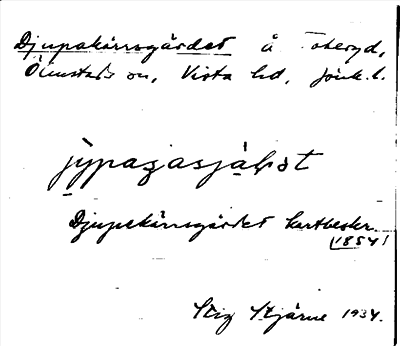 Djupakärrsgärdet å Toteryd,
Ölmstads sn, Vista hd, Jönk. l.
Djupekärrsgärdet kartbeskr.
(1854)
Stig Stjärne 1934.